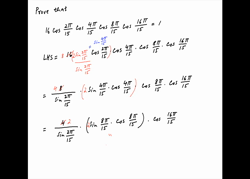 Prove that
16 cos 2π/15 cos 4π/15 cos 8π/15 cos 16π/15 = 1
LHS = 8 · 16 (sin 2π/15 / sin 2π/15) cos 2π/15 · cos 4π/15 · cos 8π/15 · cos 16π/15
= 8 / sin 2π/15 · (sin 4π/15 · cos 4π/15) cos 8π/15 · cos 16π/15
= 4 / sin 2π/15 · (sin 8π/15 · cos 8π/15) · cos 16π/15